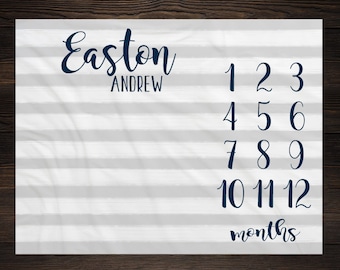 Easton
ANDREW
1 2 3
4 5 6
7 8 9
10 11 12
months